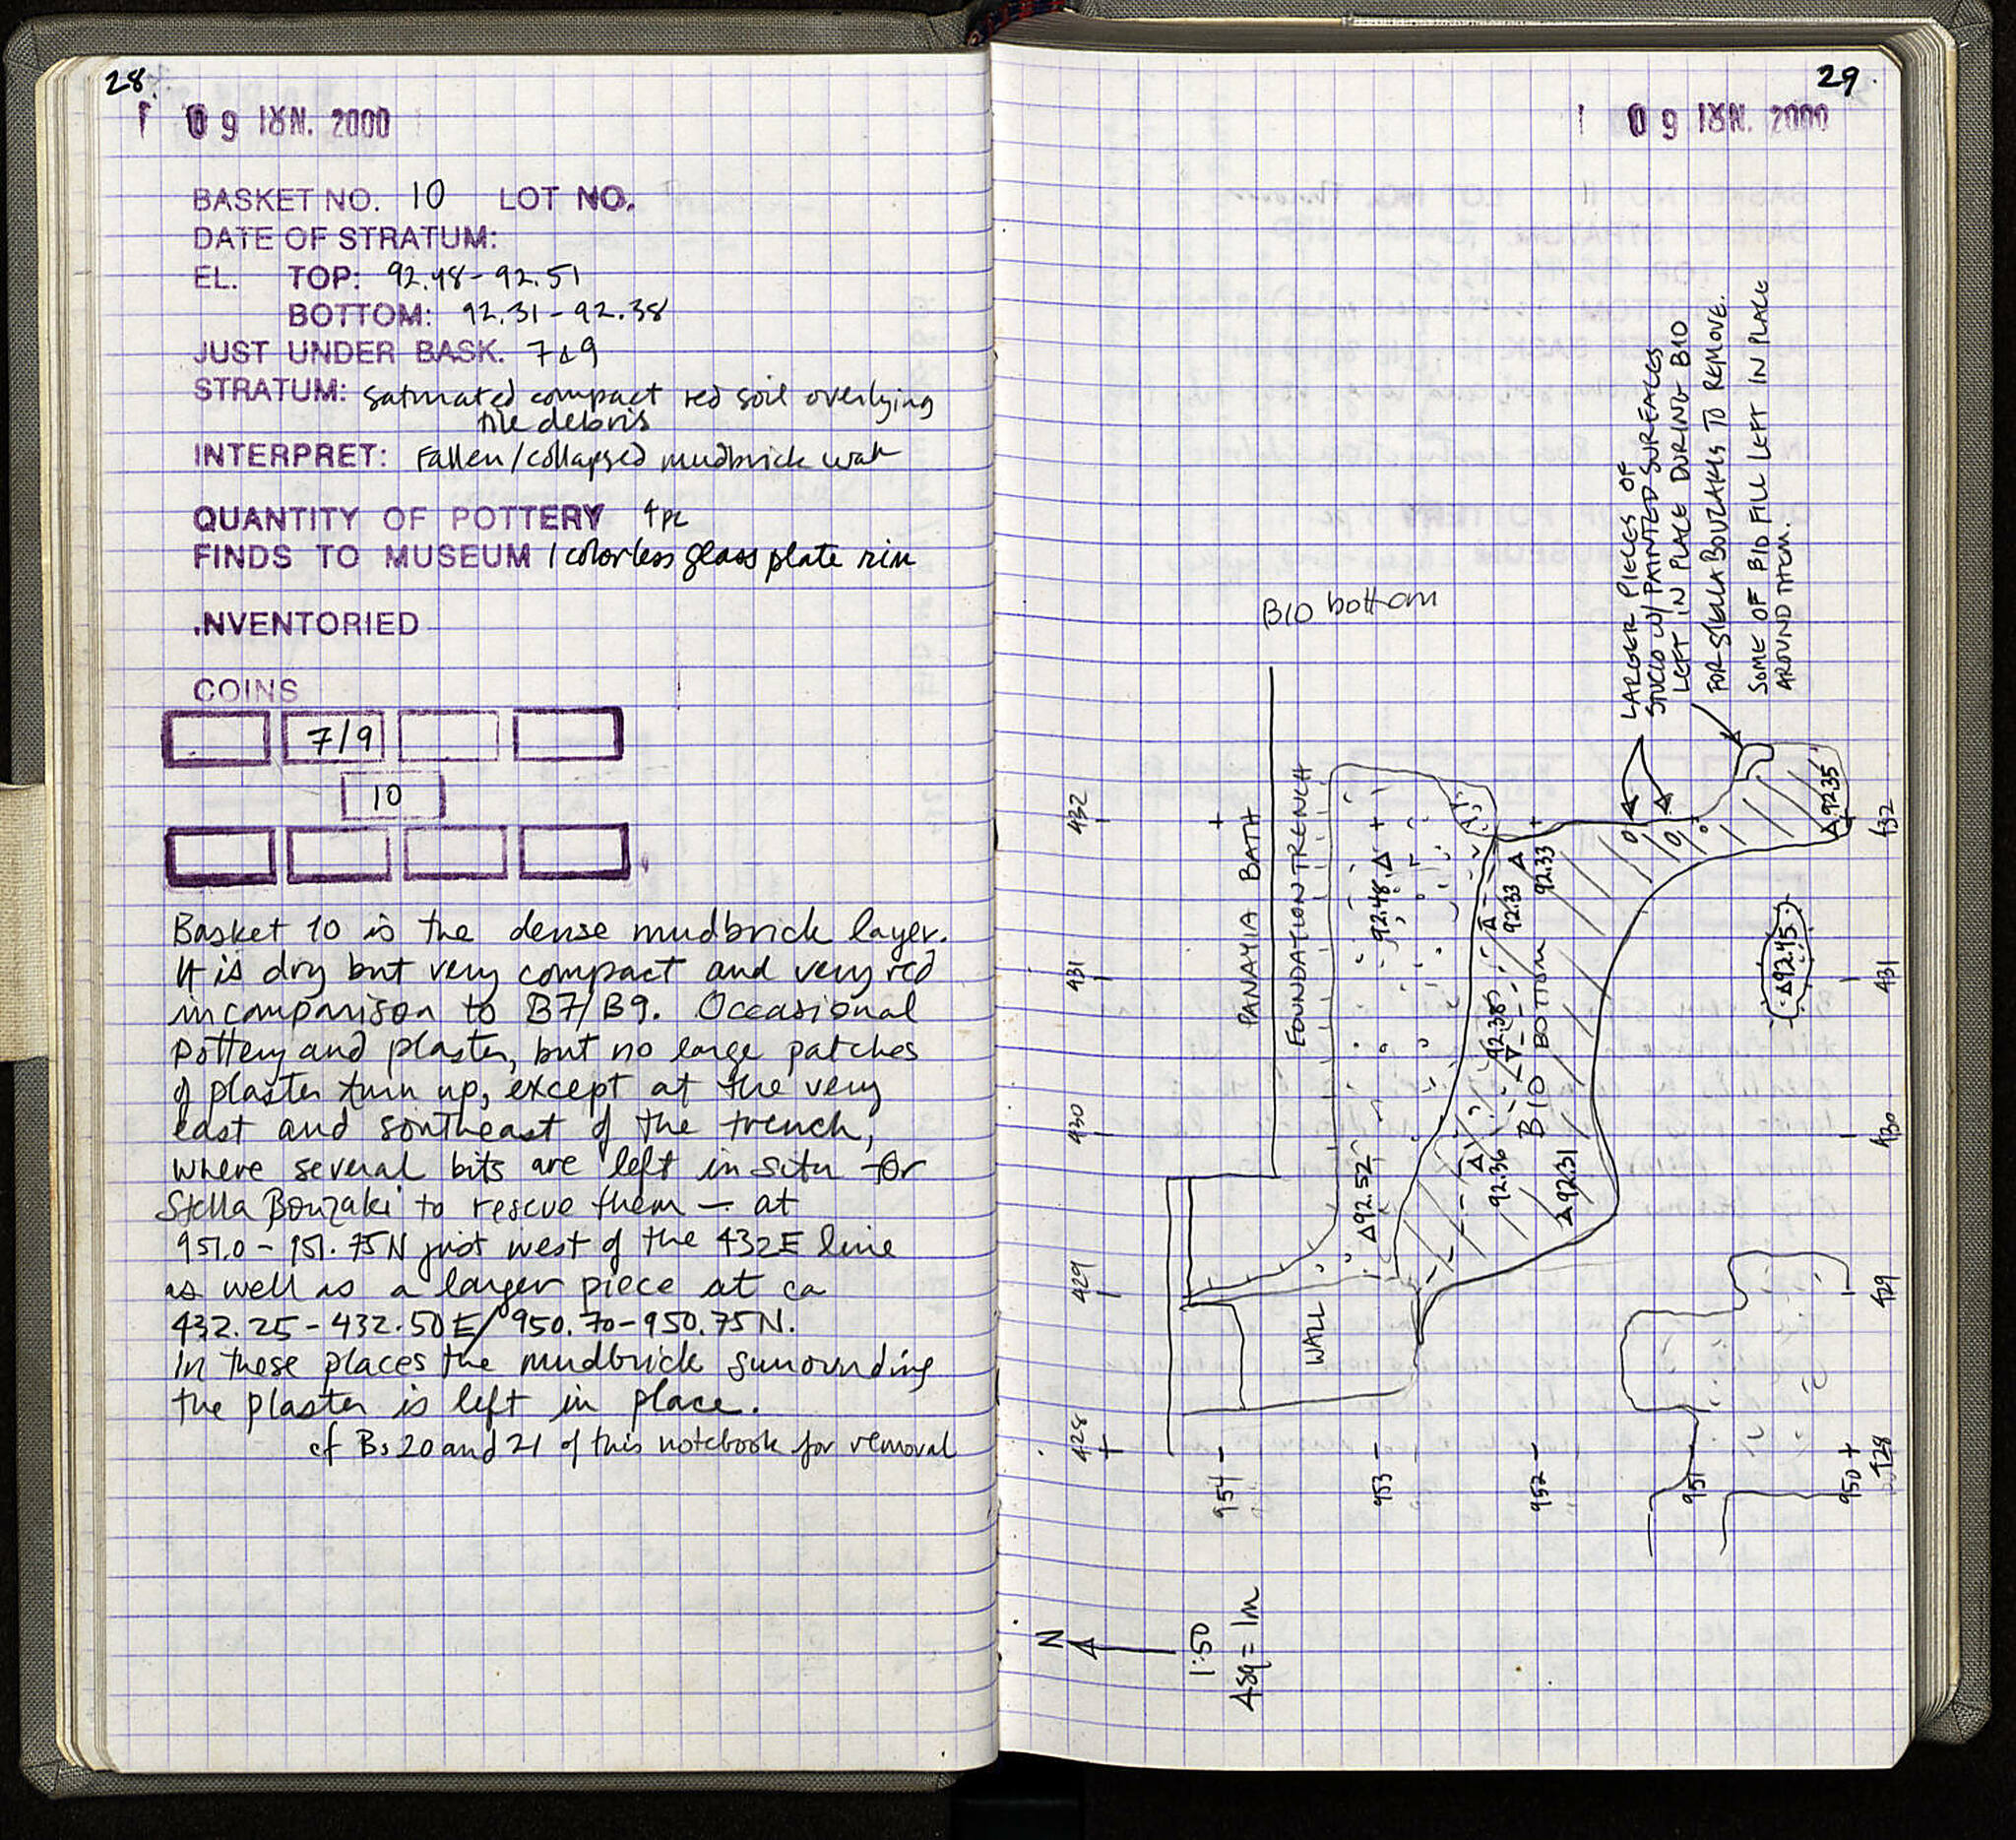 28.
09 ΙΟΥΝ. 2000
BASKET NO. 10 LOT NO.
DATE OF STRATUM:
EL. TOP: 92.48-92.51
BOTTOM: 92.31-92.38
JUST UNDER BASK. 7&9
STRATUM: saturated compact red soil overlying
tile debris
INTERPRET: Fallen/collapsed mudbrick wall
QUANTITY OF POTTERY 4pc
FINDS TO MUSEUM 1 colorless glass plate rim
.NVENTORIED
COINS
7/9
10
Basket 10 is the dense mudbrick layer.
It is dry but very compact and very red
in comparison to B7/B9. Occasional
pottery and plaster, but no large patches
of plaster turn up, except at the very
east and southeast of the trench,
where several bits are left in situ for
Stella Bouzaki to rescue them — at
951.0-951.75N just west of the 432E line
as well as a larger piece at ca
432.25-432.50E/950.70-950.75N.
In these places the mudbrick surrounding
the plaster is left in place.
cf Bs 20 and 21 of this notebook for removal
29.
09 ΙΟΥΝ. 2000
B10 bottom
LARGER PIECES OF
STUCCO W/ PAINTED SURFACES
LEFT IN PLACE DURING B10
FOR STELLA BOUZAKIS TO REMOVE.
SOME OF B10 FILL LEFT IN PLACE
AROUND THEM.
432
431
430
429
428
PANAYIA BATH
FOUNDATION TRENCH
WALL
92.48
92.52
92.33
92.33
92.38
92.36
92.31
B10 BOTTOM
92.35
92.45
432
431
430
429
428
954
953
952
951
950
N
1:50
4sq = 1m